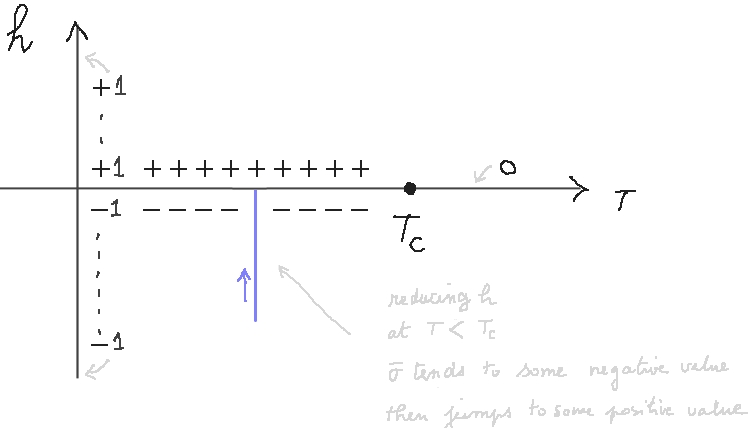 h
+1
+1 + + + + + + + + +
0
-1 - - - - - - - -
T
Tc
-1
reducing h
at T < Tc
σ̄ tends to some negative value
then jumps to some positive value